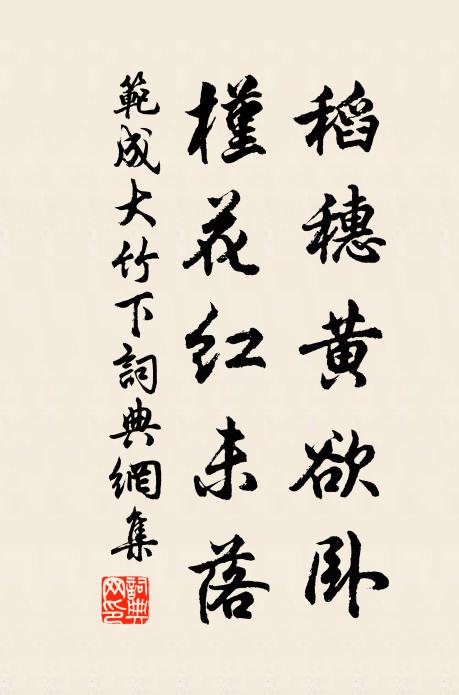 稻穗黄欲卧
槿花红未落
範成大竹下詞典網集
詞典網印